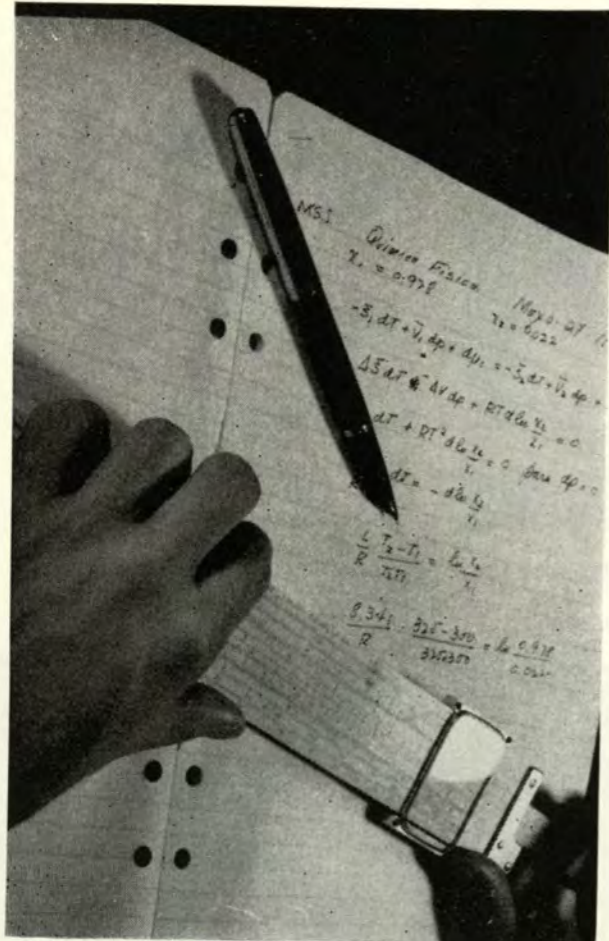 M.S.I. Química Física Mayo 27
x₁ = 0.978 x₂ = 0.022
-S̄₁dT + V̄₁dp + dμ₁ = -S̄₂dT + V̄₂dp +
ΔS̄dT ΔVdp + RTdln x₂/x₁ = 0
dT + RT²dln x₂/x₁ = 0 para dp = 0
dT = - dln x₂/x₁
L/R T₂-T₁/T₂T₁ = ln x₂/x₁
8,341/R · 325-300/325300 = ln 0.978/0.022